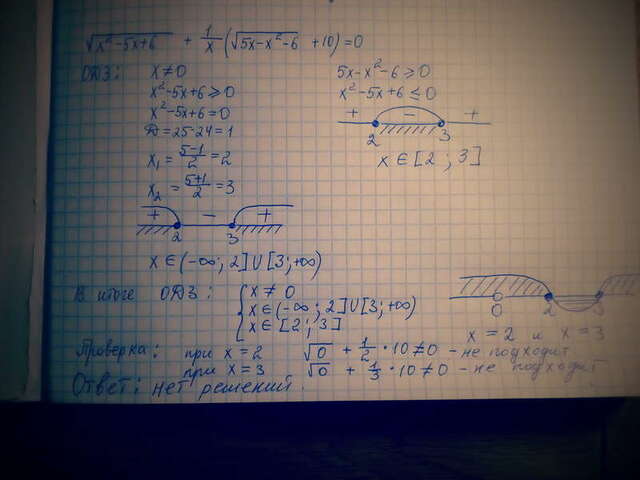 √x²-5x+6 + 1/x (√5x-x²-6 +10)=0
ОДЗ: x≠0
x²-5x+6⩾0
x²-5x+6=0
D=25-24=1
x₁ = 5-1/2 =2
x₂ = 5+1/2 =3
+ - +
2 3
x∈(-∞; 2]∪[3;+∞)
5x-x²-6⩾0
x²-5x+6⩽0
+ - +
2 3
x∈[2;3]
В итоге ОДЗ: { x≠0
x∈(-∞; 2]∪[3;+∞)
x∈[2;3]
0 2 3
x=2 и x=3
Проверка: при x=2 √0 + 1/2·10≠0 - не подходит
при x=3 √0 + 1/3·10≠0 - не подходит
Ответ: нет решений.